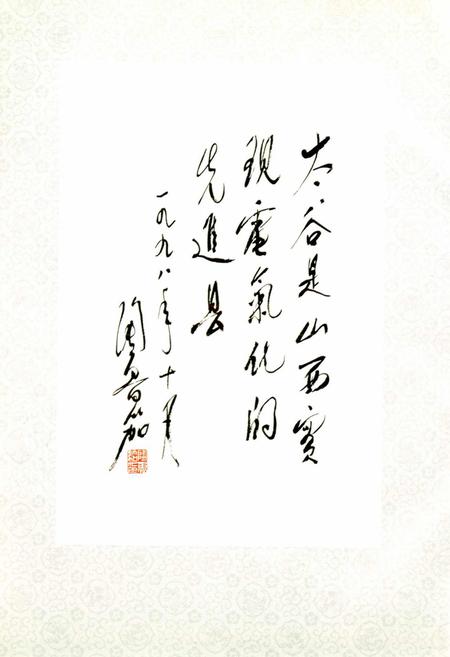 太谷是山西实
现電氣化的
先進县
一九九八年十一月
陶鲁笳